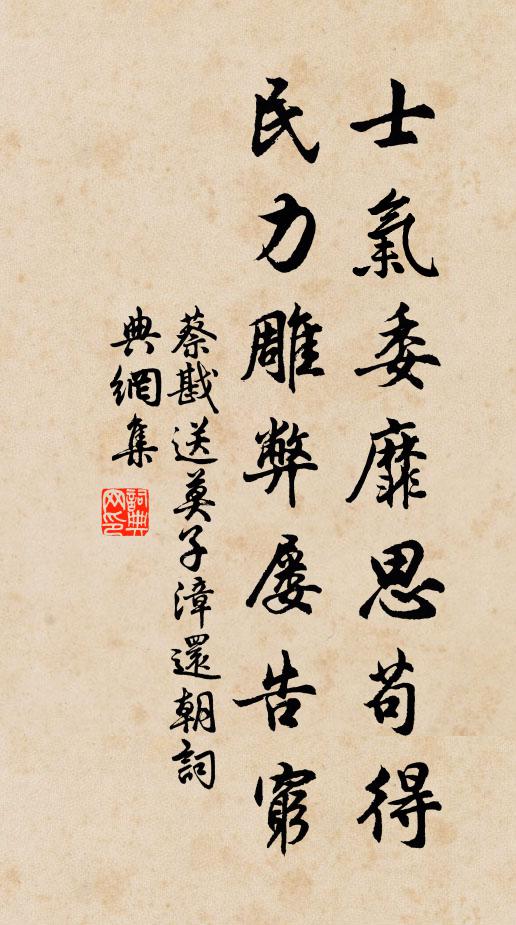 士氣委靡思苟得
民力雕弊屡告窮
蔡戡送莫子漳還朝詞
典網集
詞典网印